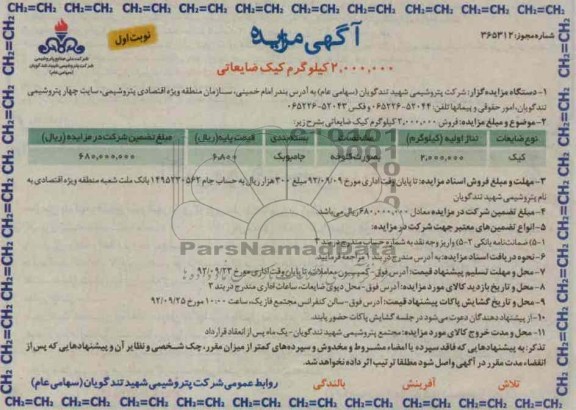 شماره مجوز: ۳۶۵۳۱۲
آگهی مزایده
نوبت اول
شرکت ملی صنایع پتروشیمی
شرکت پتروشیمی شهید تندگویان
(سهامی عام)
۲,۰۰۰,۰۰۰ کیلوگرم کیک ضایعاتی
۱- دستگاه مزایده گزار: شرکت پتروشیمی شهید تندگویان (سهامی عام) به آدرس بندر امام خمینی، سازمان منطقه ویژه اقتصادی پتروشیمی، سایت چهار پتروشیمی
تندگویان، امور حقوقی و پیمانها تلفن: ۵۲۰۴۴-۰۶۵۲۲۶ و فکس ۵۲۰۴۳-۰۶۵۲۲۶
۲- موضوع و مبلغ مزایده: فروش ۲,۰۰۰,۰۰۰ کیلوگرم کیک ضایعاتی بشرح زیر:
نوع ضایعات تناژ اولیه (کیلوگرم) بسته بندی قیمت پایه (ریال) مبلغ تضمین شرکت در مزایده (ریال)
کیک ۲,۰۰۰,۰۰۰ بصورت کلوخه جامبوبگ ۶,۸۰۰ ۶۸۰,۰۰۰,۰۰۰
۳- مهلت و مبلغ فروش اسناد مزایده: تا پایان وقت اداری مورخ ۹۲/۰۹/۰۹ مبلغ ۳۰۰ هزار ریال به حساب جام ۱۴۹۵۲۳۰۵۶۲ بانک ملت شعبه منطقه ویژه اقتصادی به
نام پتروشیمی شهید تندگویان
۴- مبلغ تضمین شرکت در مزایده معادل ۶۸۰,۰۰۰,۰۰۰ ریال می‌باشد
۵- انواع تضمین‌های معتبر جهت شرکت در مزایده:
۵-۱) ضمانتنامه بانکی ۵-۲) واریز وجه نقد به شماره حساب مندرج در بند ۳
۶- نحوه دریافت اسناد مزایده: به آدرس مندرج در بند ۱ مراجعه فرمایید.
۷- محل و مهلت تسلیم پیشنهاد قیمت: آدرس فوق - کمیسیون معاملات تا پایان وقت اداری مورخ ۹۲/۰۹/۲۳
۸- محل و تاریخ بازدید کالای مورد مزایده: آدرس فوق - محل دپوی ضایعات، ساعات اداری مندرج در بند ۳
۹- محل و تاریخ گشایش پاکات پیشنهاد قیمت: آدرس فوق - سالن کنفرانس مجتمع فاز یک، ساعت ۱۰:۰۰ مورخ ۹۲/۰۹/۲۵
۱۰- از پیشنهاد دهندگان دعوت می‌شود در جلسه گشایش پاکات حضور یابند.
۱۱- محل و مدت خروج کالای مورد مزایده: مجتمع پتروشیمی شهید تندگویان - یک ماه پس از انعقاد قرارداد
تذکر: به پیشنهادهایی که فاقد سپرده یا امضاء مشروط و مخدوش و سپرده‌های کمتر از میزان مقرر، چک شخصی و نظایر آن و پیشنهادهایی که پس از
انقضاء مدت مقرر در آگهی واصل شود مطلقا ترتیب اثر داده نخواهد شد.
تلاش آفرینش بالندگی
روابط عمومی شرکت پتروشیمی شهید تندگویان (سهامی عام)
ParsNamadData
CH₂=CH₂